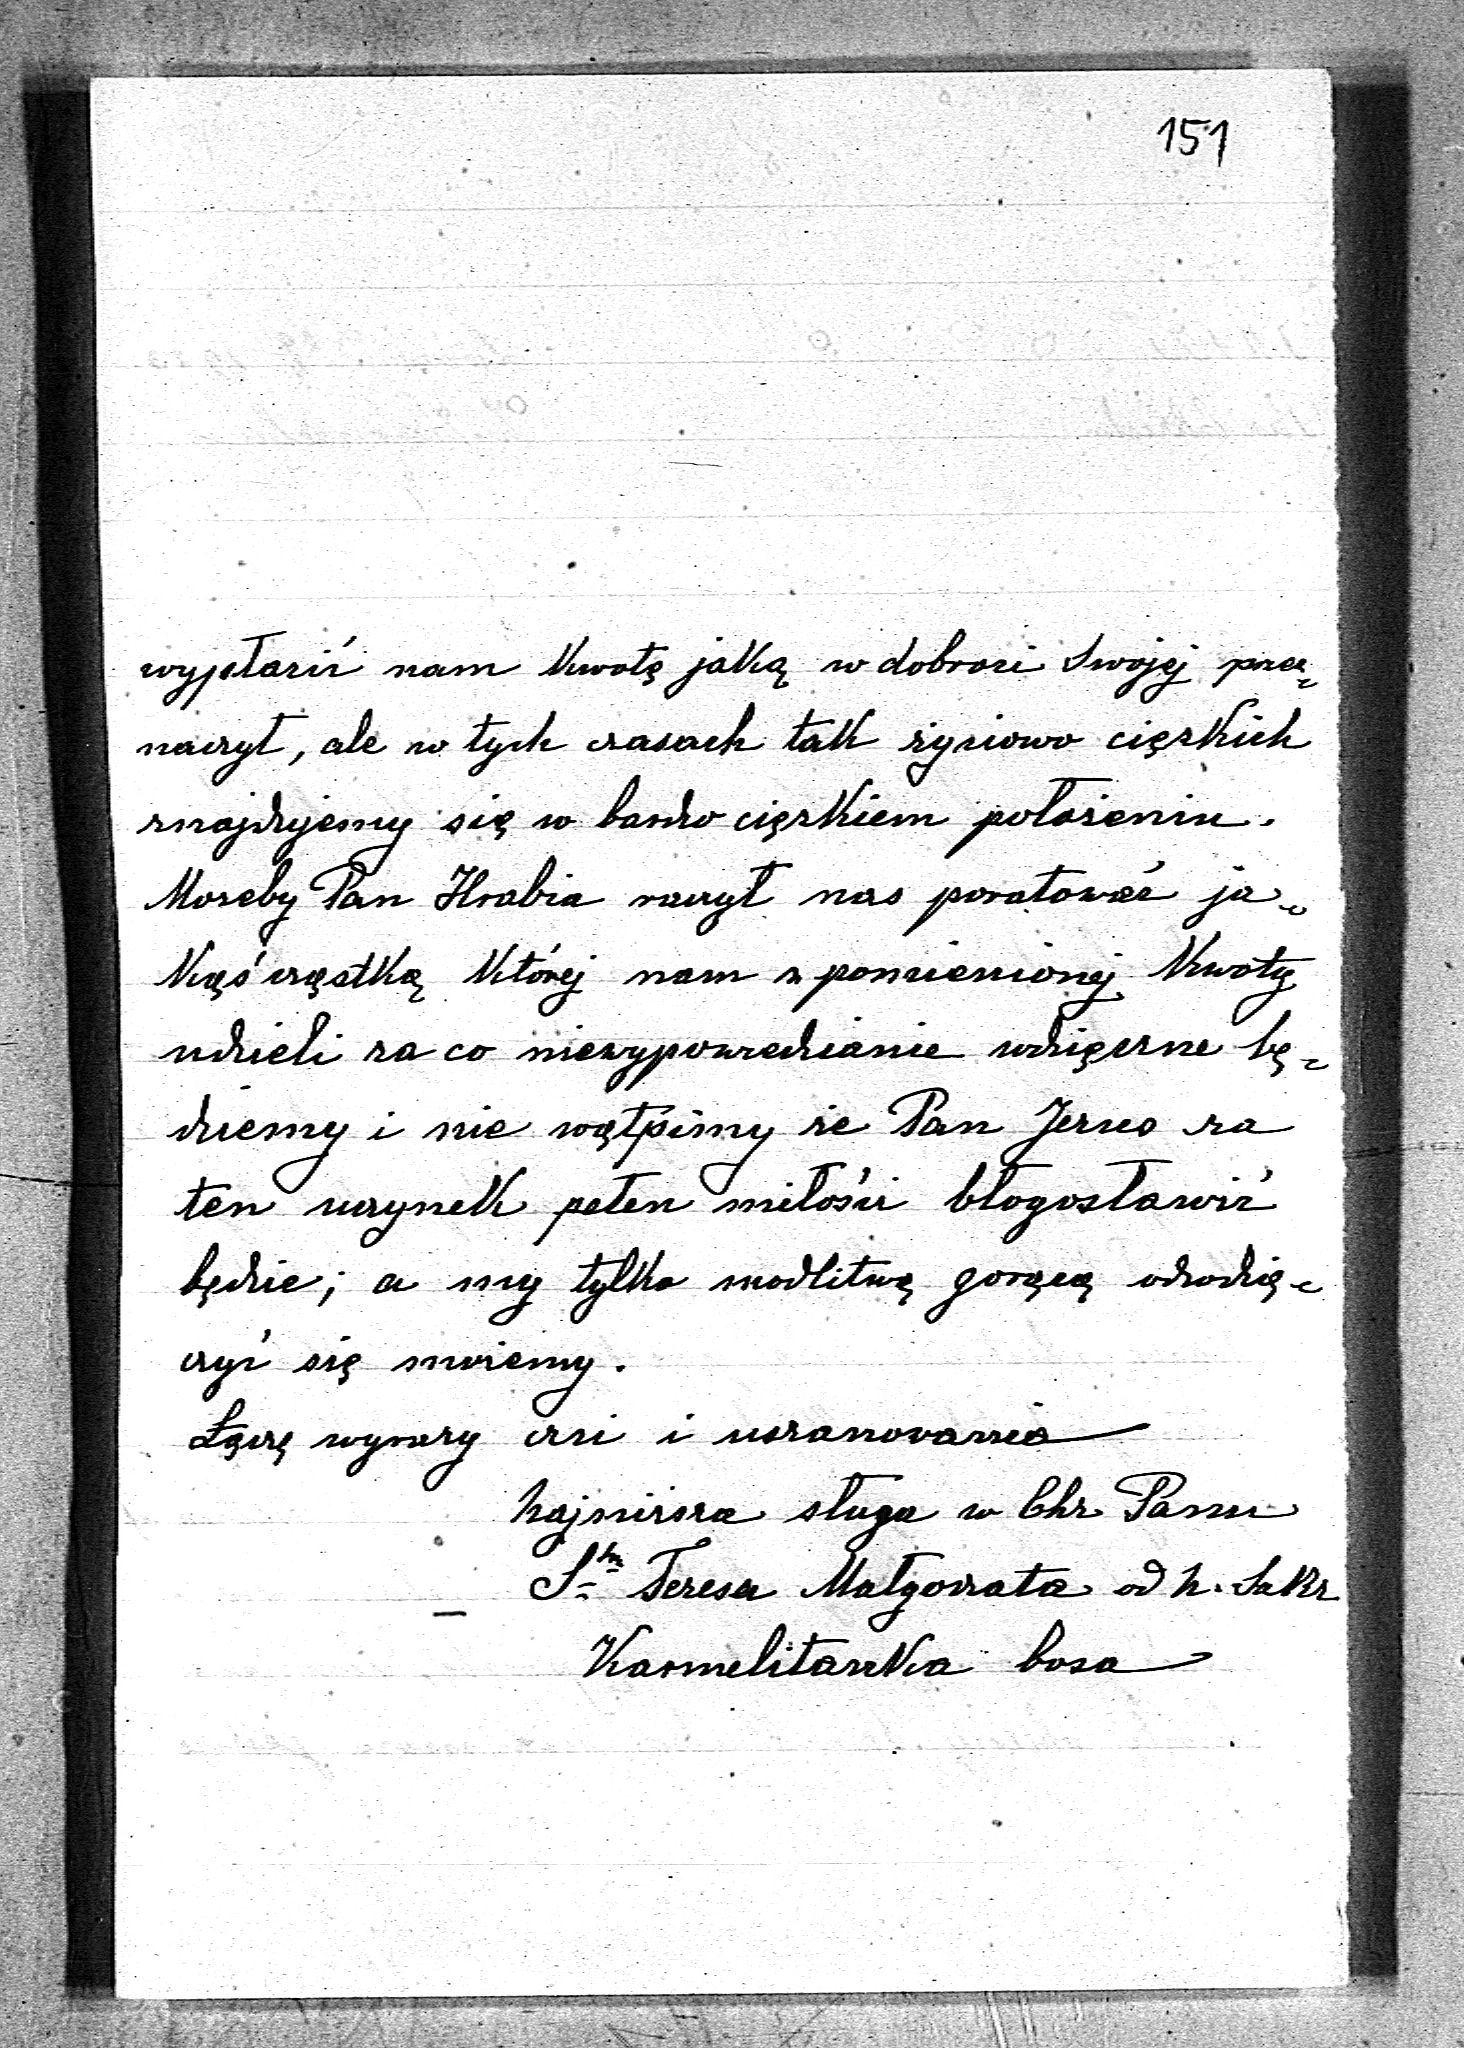 151
wypłacić nam kwotę jaką w dobroci Swojej prze„
naczył, ale w tych czasach tak życiowo ciężkich
znajdujemy się w bardzo ciężkiem położeniu.
Możeby Pan Hrabia raczył nas poratować ja„
kąś cząstką której nam z pomienionej kwoty
udzieli za co niewypowiedzianie wdzięczne bę„
dziemy i nie wątpimy że Pan Jezus za
ten uczynek pełen miłości błogosławić
będzie; a my tylko modlitwą gorącą odwdzię„
czyć się możemy.
Łączę wyrazy czci i uszanowania
Najniższa sługa w Chr. Panu
S. Teresa Małgorzata od N. Sakr
Karmelitanka bosa